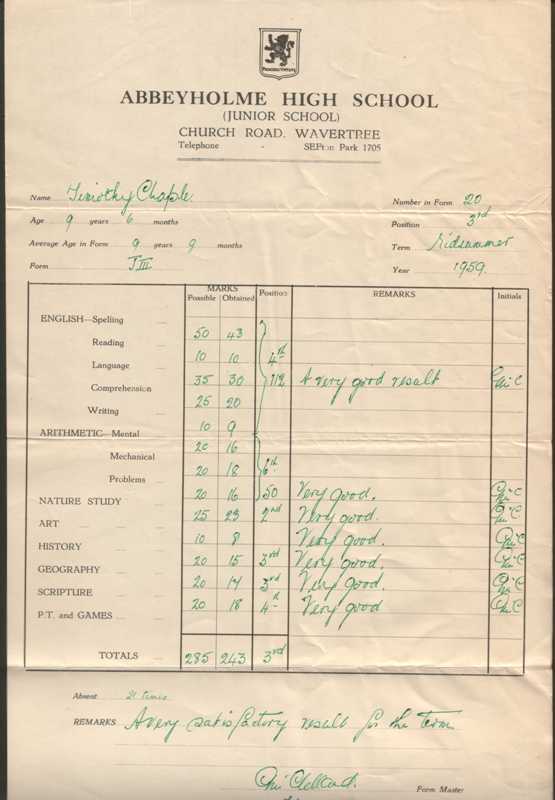 ABBEYHOLME HIGH SCHOOL
(JUNIOR SCHOOL)
CHURCH ROAD, WAVERTREE
Telephone - SEFton Park 1705
Name Timothy Chaple. Number in Form 20
Age 9 years 6 months Position 3rd
Average Age in Form 9 years 9 months Term Midsummer
Form J III Year 1959.
MARKS
Possible Obtained Position REMARKS Initials
ENGLISH—Spelling
50 43
Reading
10 10 4th
Language
35 30 112 A very good result
Comprehension
25 20
Writing
10 9
ARITHMETIC—Mental
20 16
Mechanical
20 18 6th
Problems
20 16 50 Very good.
NATURE STUDY
25 23 2nd Very good.
ART
10 8 Very good.
HISTORY
20 15 3rd Very good.
GEOGRAPHY
20 17 3rd Very good.
SCRIPTURE
20 18 4th Very good
P.T. and GAMES
TOTALS 285 243 3rd
Absent 21 times
REMARKS A very satisfactory result for the term
Form Master